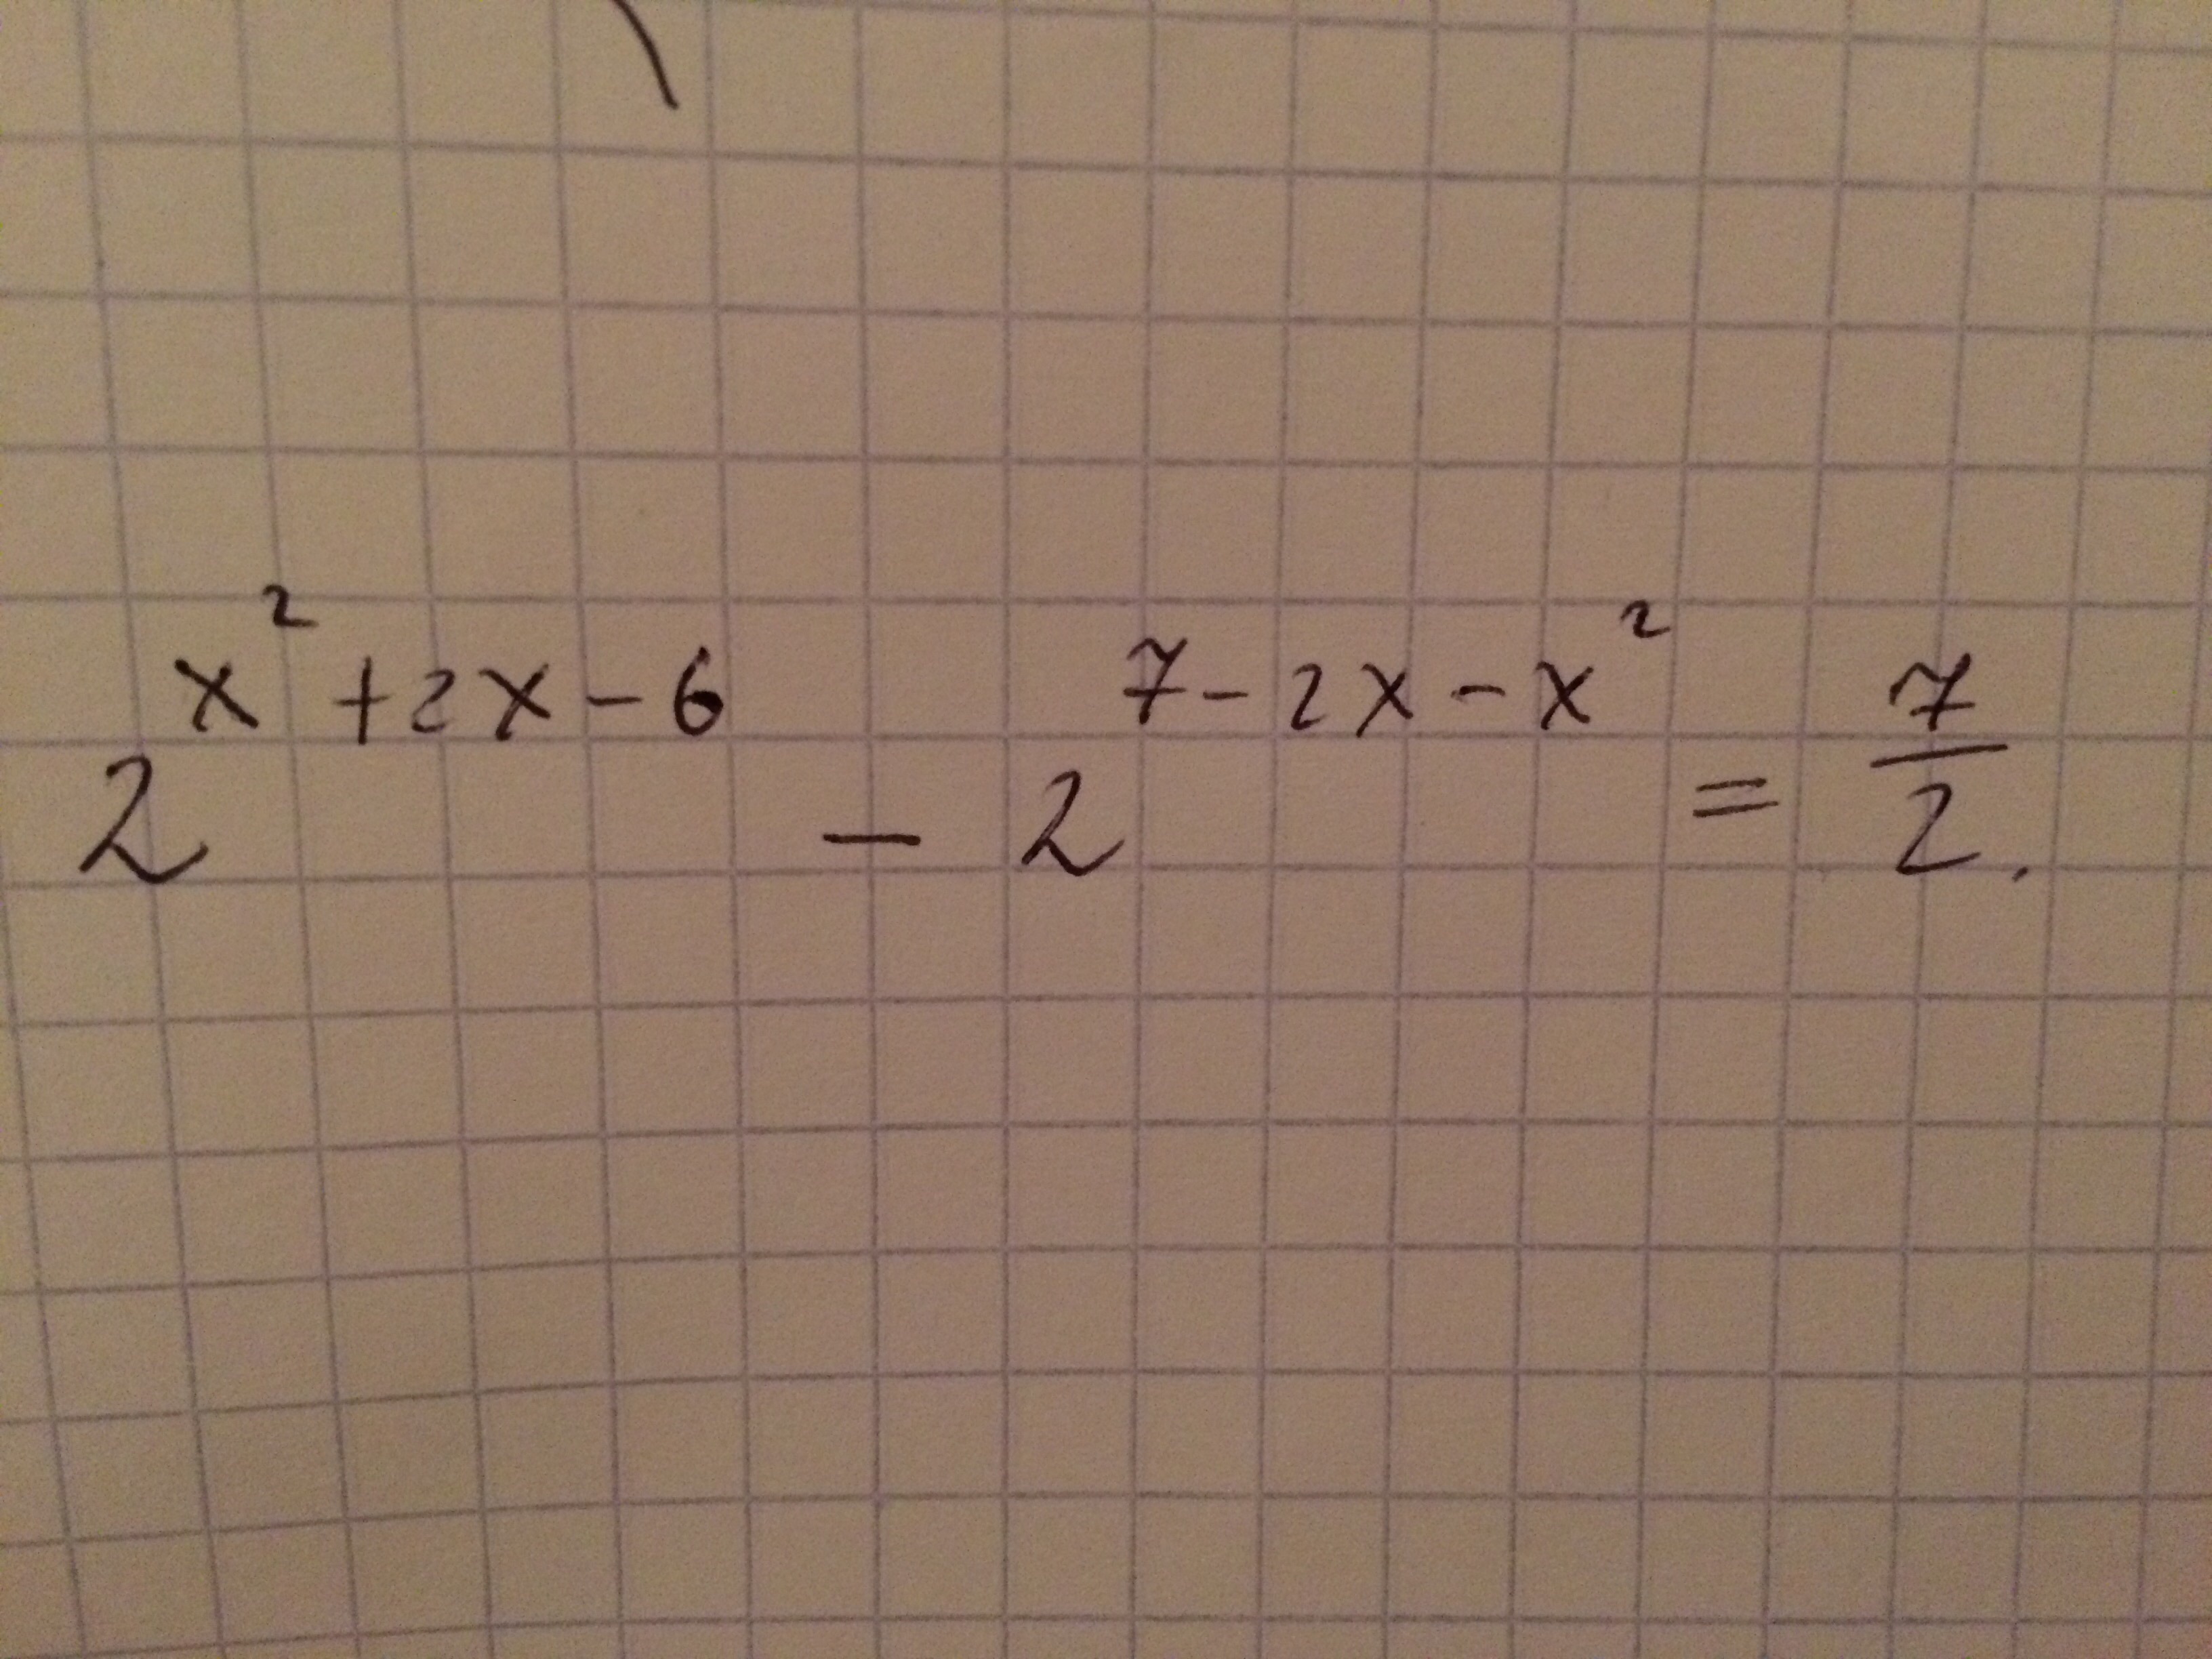 2^{x^2+2x-6} - 2^{7-2x-x^2} = \frac{7}{2}.